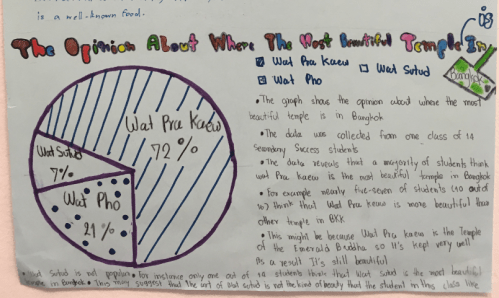 is a well-known food.
is
The Opinion About Where The Most Beautiful Temple In
Bangkok
Wat Pra Kaew
Wat Sutud
Wat Pho
Wat Pra Kaew
72%
Wat Sutud
7%
Wat Pho
21%
• The graph show the opinion about where the most
beautiful temple is in Bangkok
• The data was collected from one class of 14
Secondary Success students
• The data reveals that a majority of students think
Wat Pra Kaew is the most beautiful temple in Bangkok
• For example nearly five-seven of students (10 out of
14) think that Wat Pra Kaew is more beautiful than
other temple in BKK
• This might be because Wat Pra Kaew is the Temple
of the Emerald Buddha so it's kept very well
As a result It's still beautiful
• Wat Sutud is not popular • For instance only one out of 14 students think that Wat Sutud is the most beautiful
temple in Bangkok • This may suggest that the art of Wat Sutud is not the kind of beauty that the student in this class like